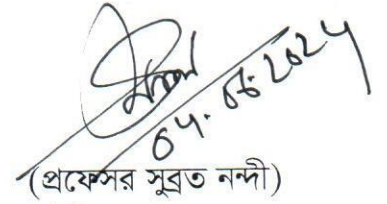 04.06.2024
(প্রফেসর সুব্রত নন্দী)